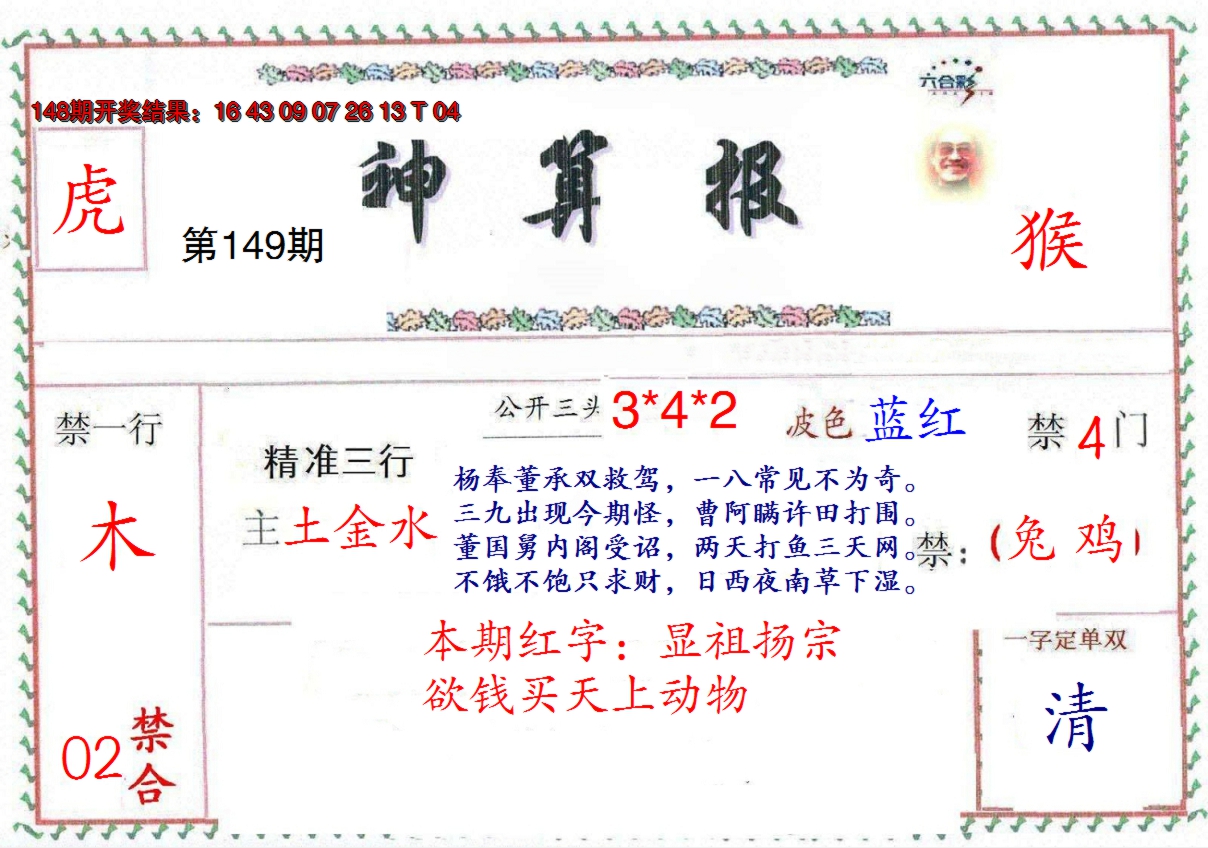 六合彩
148期开奖结果：16 43 09 07 26 13 T 04
神算报
虎
第149期
猴
公开三头 3*4*2
波色 蓝红
禁4门
禁一行
木
精准三行
主土金水
杨奉董承双救驾，一八常见不为奇。
三九出现今期怪，曹阿瞒许田打围。
董国舅内阁受诏，两天打鱼三天网。
不饿不饱只求财，日西夜南草下湿。
禁：（兔 鸡）
本期红字：显祖扬宗
欲钱买天上动物
一字定单双
清
02
禁合